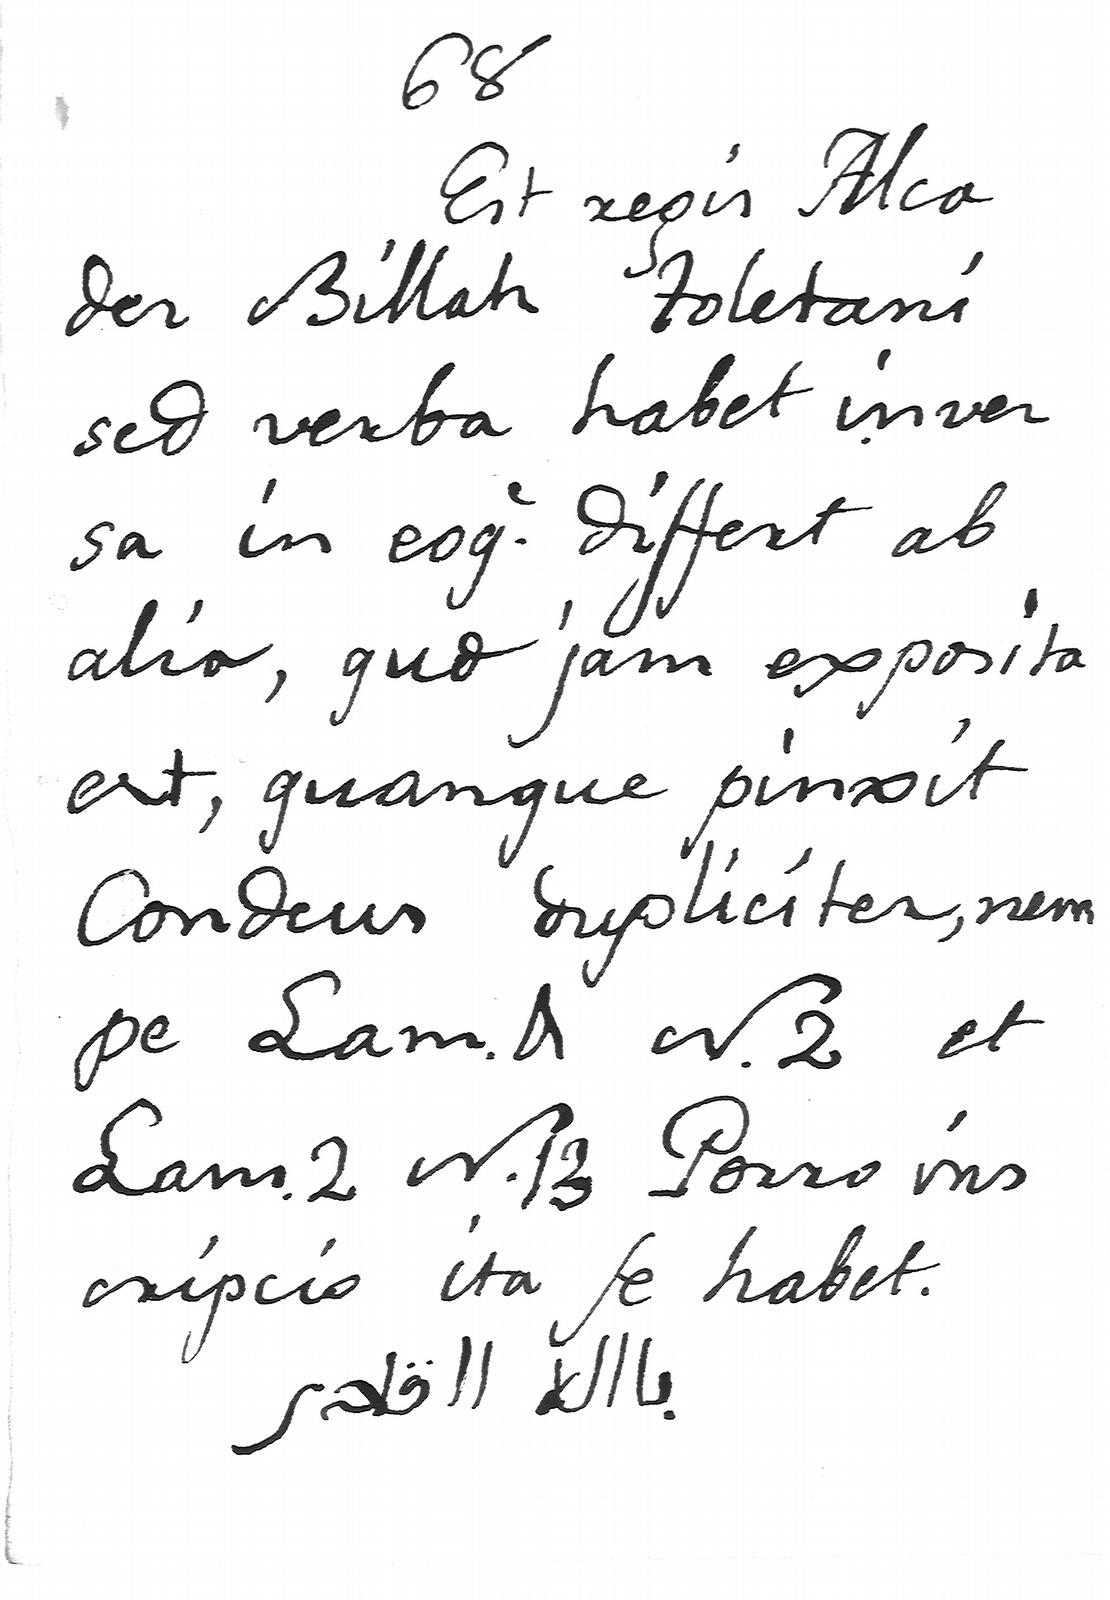 68
Est regis Alca
der Billah Toletani
sed verba habet inver
sa in eoq̃. differt ab
alio, quod jam exposita
est, quanque pinxit
Condeus dupliciter, nem
pe Lam. A N. 2 et
Lam. 2 N. 13 Porro ins
cripcio ita se habet.
بالله القادر